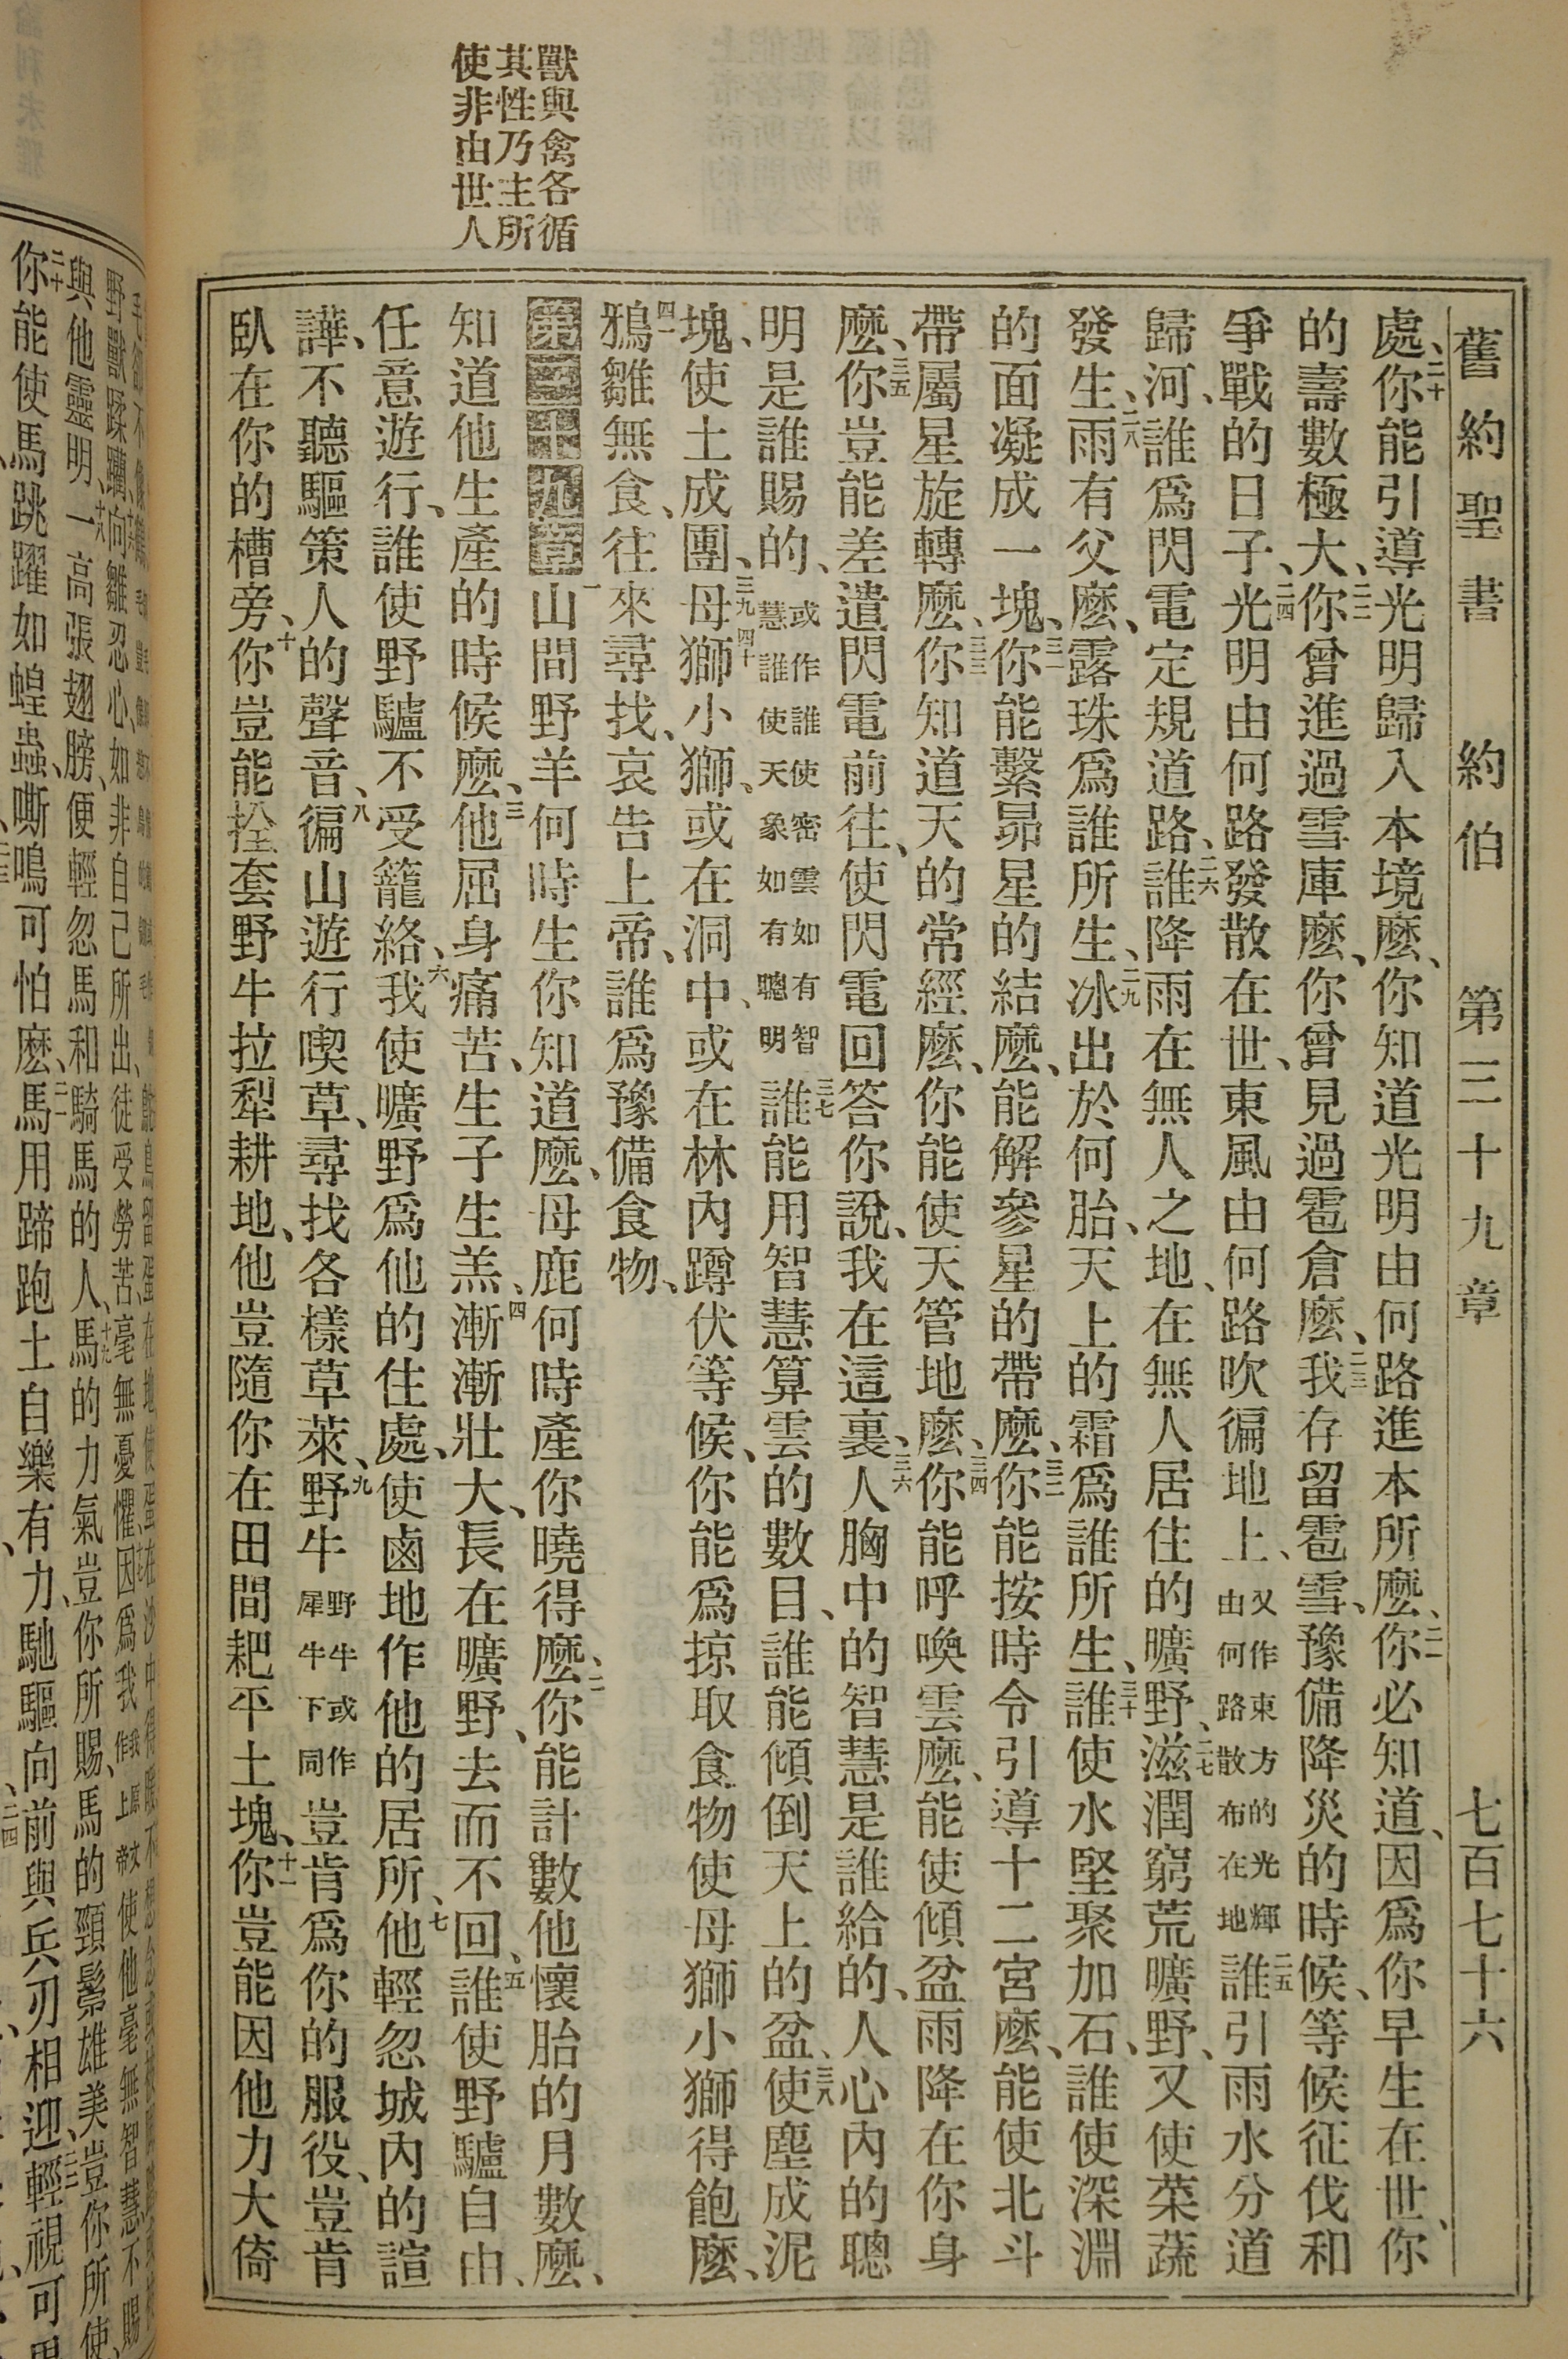 舊約聖書 約伯 第三十九章 七百七十六
處、二十你能引導光明歸入本境麽、你知道光明由何路進本所麽、二一你必知道、因爲你早生在世、你
的壽數極大、二二你曾進過雪庫麽、你曾見過雹倉麽、二三我存留雹雪、豫備降災的時候、等候征伐和
爭戰的日子、二四光明由何路發散在世、東風由何路吹徧地上、又作東方的光輝由何路散布在地二五誰引雨水分道
歸河、誰爲閃電定規道路、二六誰降雨在無人之地、在無人居住的曠野、二七滋潤窮荒曠野、又使菜蔬
發生、二八雨有父麽、露珠爲誰所生、二九冰出於何胎、天上的霜爲誰所生、三十誰使水堅聚加石、誰使深淵
的面凝成一塊、三一你能繫昴星的結麽、能解參星的帶麽、三二你能按時令引導十二宮麽、能使北斗
帶屬星旋轉麽、三三你知道天的常經麽、你能使天管地麽、三四你能呼喚雲麽、能使傾盆雨降在你身
麽、三五你豈能差遣閃電前往、使閃電回答你說、我在這裏、三六人胸中的智慧是誰給的、人心內的聰
明是誰賜的、或作誰使密雲如有智慧誰使天象如有聰明三七誰能用智慧算雲的數目、誰能傾倒天上的盆、三八使塵成泥
塊、使土成團、三九母獅四十小獅、或在洞中、或在林內蹲伏等候、你能爲掠取食物使母獅小獅得飽麽、
四一鴉雛無食、往來尋找、哀告上帝、誰爲豫備食物、
獸與禽各循
其性乃主所
使非由世人
第三十九章一山間野羊何時生你知道麽、母鹿何時產你曉得麽、二你能計數他懷胎的月數麽、
知道他生產的時候麽、三他屈身痛苦、生子生羔、四漸漸壯大、長在曠野、去而不回、五誰使野驢自由、
任意遊行、誰使野驢不受籠絡、六我使曠野爲他的住處、使鹵地作他的居所、七他輕忽城內的諠
譁、不聽驅策人的聲音、八徧山遊行喫草、尋找各樣草萊、九野牛野牛或作犀牛下同豈肯爲你的服役、豈肯
臥在你的槽旁、十你豈能拴套野牛拉犁耕地、他豈隨你在田間耙平土塊、十一你豈能因他力大倚
與他靈明、十八一高張翅膀、便輕忽馬和騎馬的人、十九馬的力氣豈你所賜、馬的頸鬃雄美豈你所使、
二十你能使馬跳躍如蝗蟲、嘶鳴可怕麽、二一馬用蹄跑土自樂有力、馳驅向前與兵刃相迎、二二輕視可